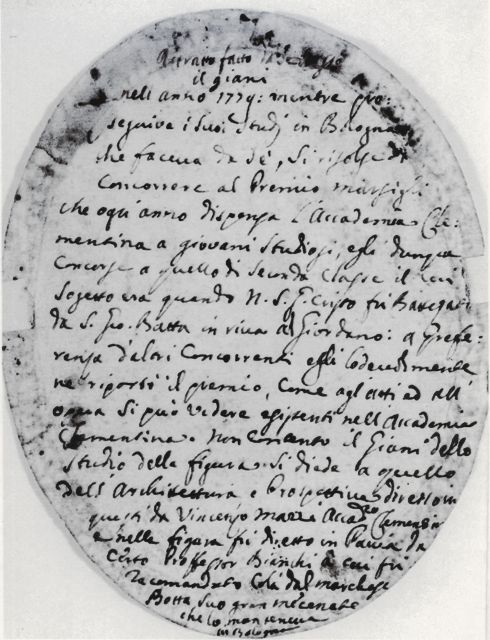 Ritratto fatto
il giani
nell anno 1779: mentre pro:
seguiva i suoi Studj in Bologna
che faceva da sé, Si risolse di
Concorrere al Premio marsigli
che ogni anno dispensa l'Accademia Cle:
mentina a giovani Studiosi, egli dunque
Concorse a quello di Seconda Classe il cui
Sogetto era quando N. S. G. Cristo fu Batezato
da S. Gio. Batta in riva al Giordano: a prefe:
renza d'altri Concorrenti egli lodevolmente
ne riportò il premio, Come agl'atti ed all'
opera Si può videre esistenti nell'Accademia
Clementina. Non contento il Giani dello
Studio della figura. Si diede a quello
dell'Architettura e Prospettiva diretto in
questi da Vincenzo Mazzi Accad.co Clementin
e nelle figura fu diretto in Pavia da
Certo Proffessor Bianchi a cui fu
racomandato Colà dal marchese
Botta Suo gran mecenate
che lo manteneva
in Bologna